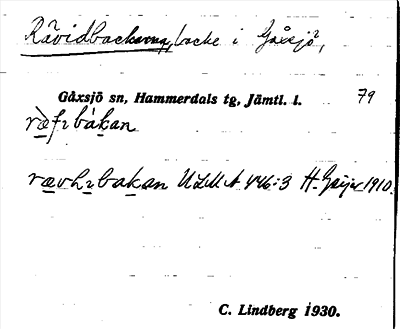 Råvidbackarna, backe i Gåxsjö,
Gåxsjö sn, Hammerdals tg, Jämtl. l. 79
ræ̀fɪbákan
rævhɪbakan ULMA 446:3 H. Geijer 1910.
C. Lindberg 1930.